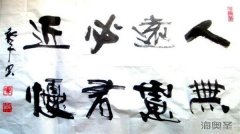 人無
遠慮
必有
近憂
海奥圣